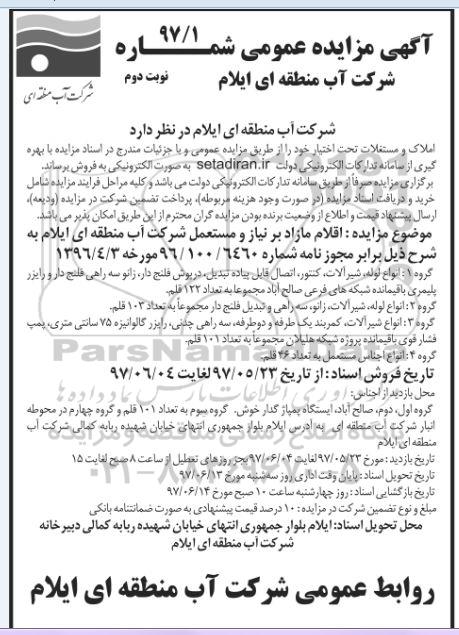 آگهی مزایده عمومی شمـــــاره ۹۷/۱
شرکت آب منطقه ای ایلام
نوبت دوم
شرکت آب منطقه ای
شرکت آب منطقه ای ایلام در نظر دارد
املاک و مستغلات تحت اختیار خود را از طریق مزایده عمومی و با جزئیات مندرج در اسناد مزایده با بهره
گیری از سامانه تدارکات الکترونیکی دولت setadiran.ir به صورت الکترونیکی به فروش برساند.
برگزاری مزایده صرفاً از طریق سامانه تدارکات الکترونیکی دولت می باشد و کلیه مراحل فرآیند مزایده شامل
خرید و دریافت اسناد مزایده (در صورت وجود هزینه مربوطه)، پرداخت تضمین شرکت در مزایده (ودیعه)،
ارسال پیشنهاد قیمت و اطلاع از وضعیت برنده بودن مزایده گران محترم از این طریق امکان پذیر می باشد.
موضوع مزایده : اقلام مازاد بر نیاز و مستعمل شرکت آب منطقه ای ایلام به
شرح ذیل برابر مجوز نامه شماره ۹۶/۱۰۰/۶۴۶۰ مورخه ۱۳۹۶/۴/۳
گروه ۱ : انواع لوله، شیرآلات، کنتور، اتصال قابل پیاده تبدیل، درپوش فلنج دار، زانو سه راهی فلنج دار و رایزر
پلیمری باقیمانده شبکه های فرعی صالح آباد مجموعا به تعداد ۱۲۲ قلم.
گروه ۲ : انواع لوله، شیرآلات، زانو، سه راهی و تبدیل فلنج دار مجموعاً به تعداد ۱۰۳ قلم.
گروه ۳ : انواع شیرآلات، کمربند یک طرفه و دوطرفه، سه راهی چدنی، رایزر گالوانیزه ۷۵ سانتی متری، پمپ
فشار قوی باقیمانده پروژه شبکه هلیلان مجموعاً به تعداد ۱۰۱ قلم.
گروه ۴ : انواع اجناس مستعمل به تعداد ۴۶ قلم.
تاریخ فروش اسناد : از تاریخ ۹۷/۰۵/۲۳ لغایت ۹۷/۰۶/۰۴
محل بازدید از اجناس:
گروه اول، دوم، صالح آباد، ایستگاه پمپاژ گدار خوش. گروه سوم به تعداد ۱۰۱ قلم و گروه چهارم در محوطه
انبار شرکت آب منطقه ای به آدرس ایلام بلوار جمهوری انتهای خیابان شهیده ربابه کمالی شرکت آب
منطقه ای ایلام
تاریخ بازدید : مورخ ۹۷/۰۵/۲۳ لغایت ۹۷/۰۶/۰۴ بجز روزهای تعطیل از ساعت ۸ صبح لغایت ۱۵
تاریخ تحویل اسناد : پایان وقت اداری روز سه‌شنبه مورخ ۹۷/۰۶/۱۳
تاریخ بازگشایی اسناد : روز چهارشنبه ساعت ۱۰ صبح مورخ ۹۷/۰۶/۱۴
مبلغ و نوع تضمین شرکت در مزایده : ۱۰ درصد قیمت پیشنهادی به صورت ضمانتنامه بانکی
محل تحویل اسناد: ایلام بلوار جمهوری انتهای خیابان شهیده ربابه کمالی دبیرخانه
شرکت آب منطقه ای ایلام
روابط عمومی شرکت آب منطقه ای ایلام